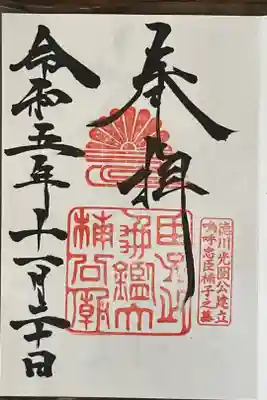 奉拝
徳川光圀公建立
嗚呼忠臣楠子之墓
臣子之
鑑大
楠公廟
令和五年十一月二十日